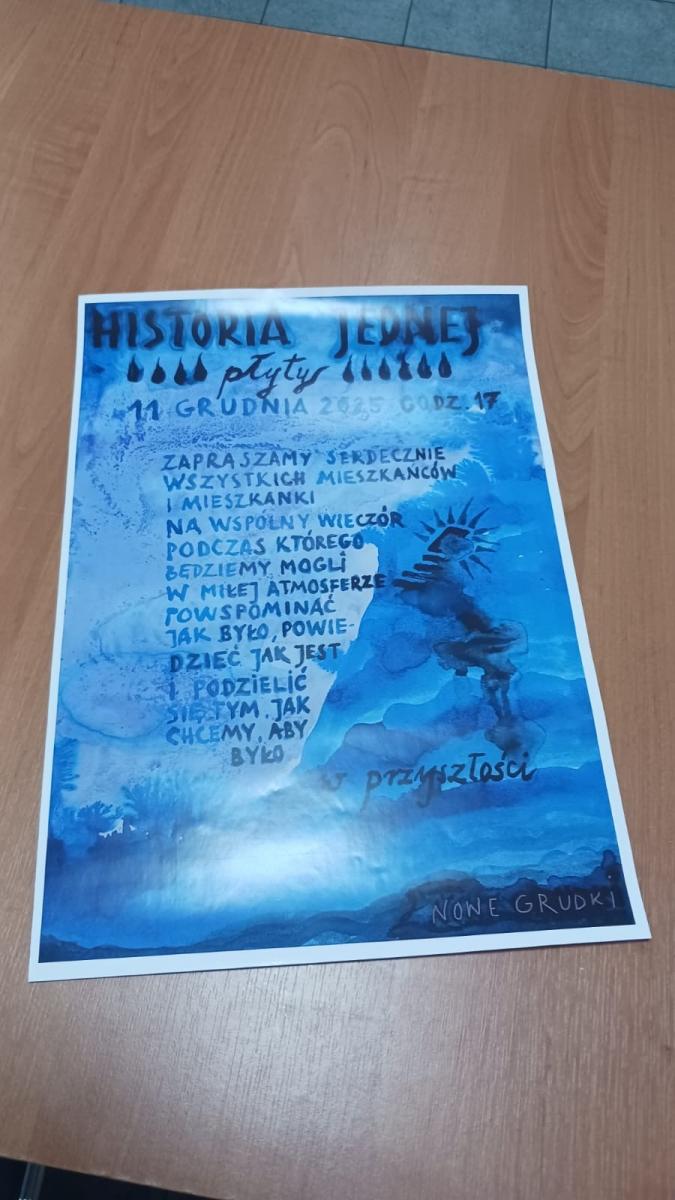 HISTORIA JEDNEJ
płyty
11 GRUDNIA 2025 GODZ. 17
ZAPRASZAMY SERDECZNIE
WSZYSTKICH MIESZKAŃCÓW
I MIESZKANKI
NA WSPÓLNY WIECZÓR
PODCZAS KTÓREGO
BĘDZIEMY MOGLI
W MIŁEJ ATMOSFERZE
POWSPOMINAĆ
JAK BYŁO, POWIE-
DZIEĆ JAK JEST
I PODZIELIĆ
SIĘ TYM, JAK
CHCEMY, ABY
BYŁO
w przyszłości
NOWE GRUDKI